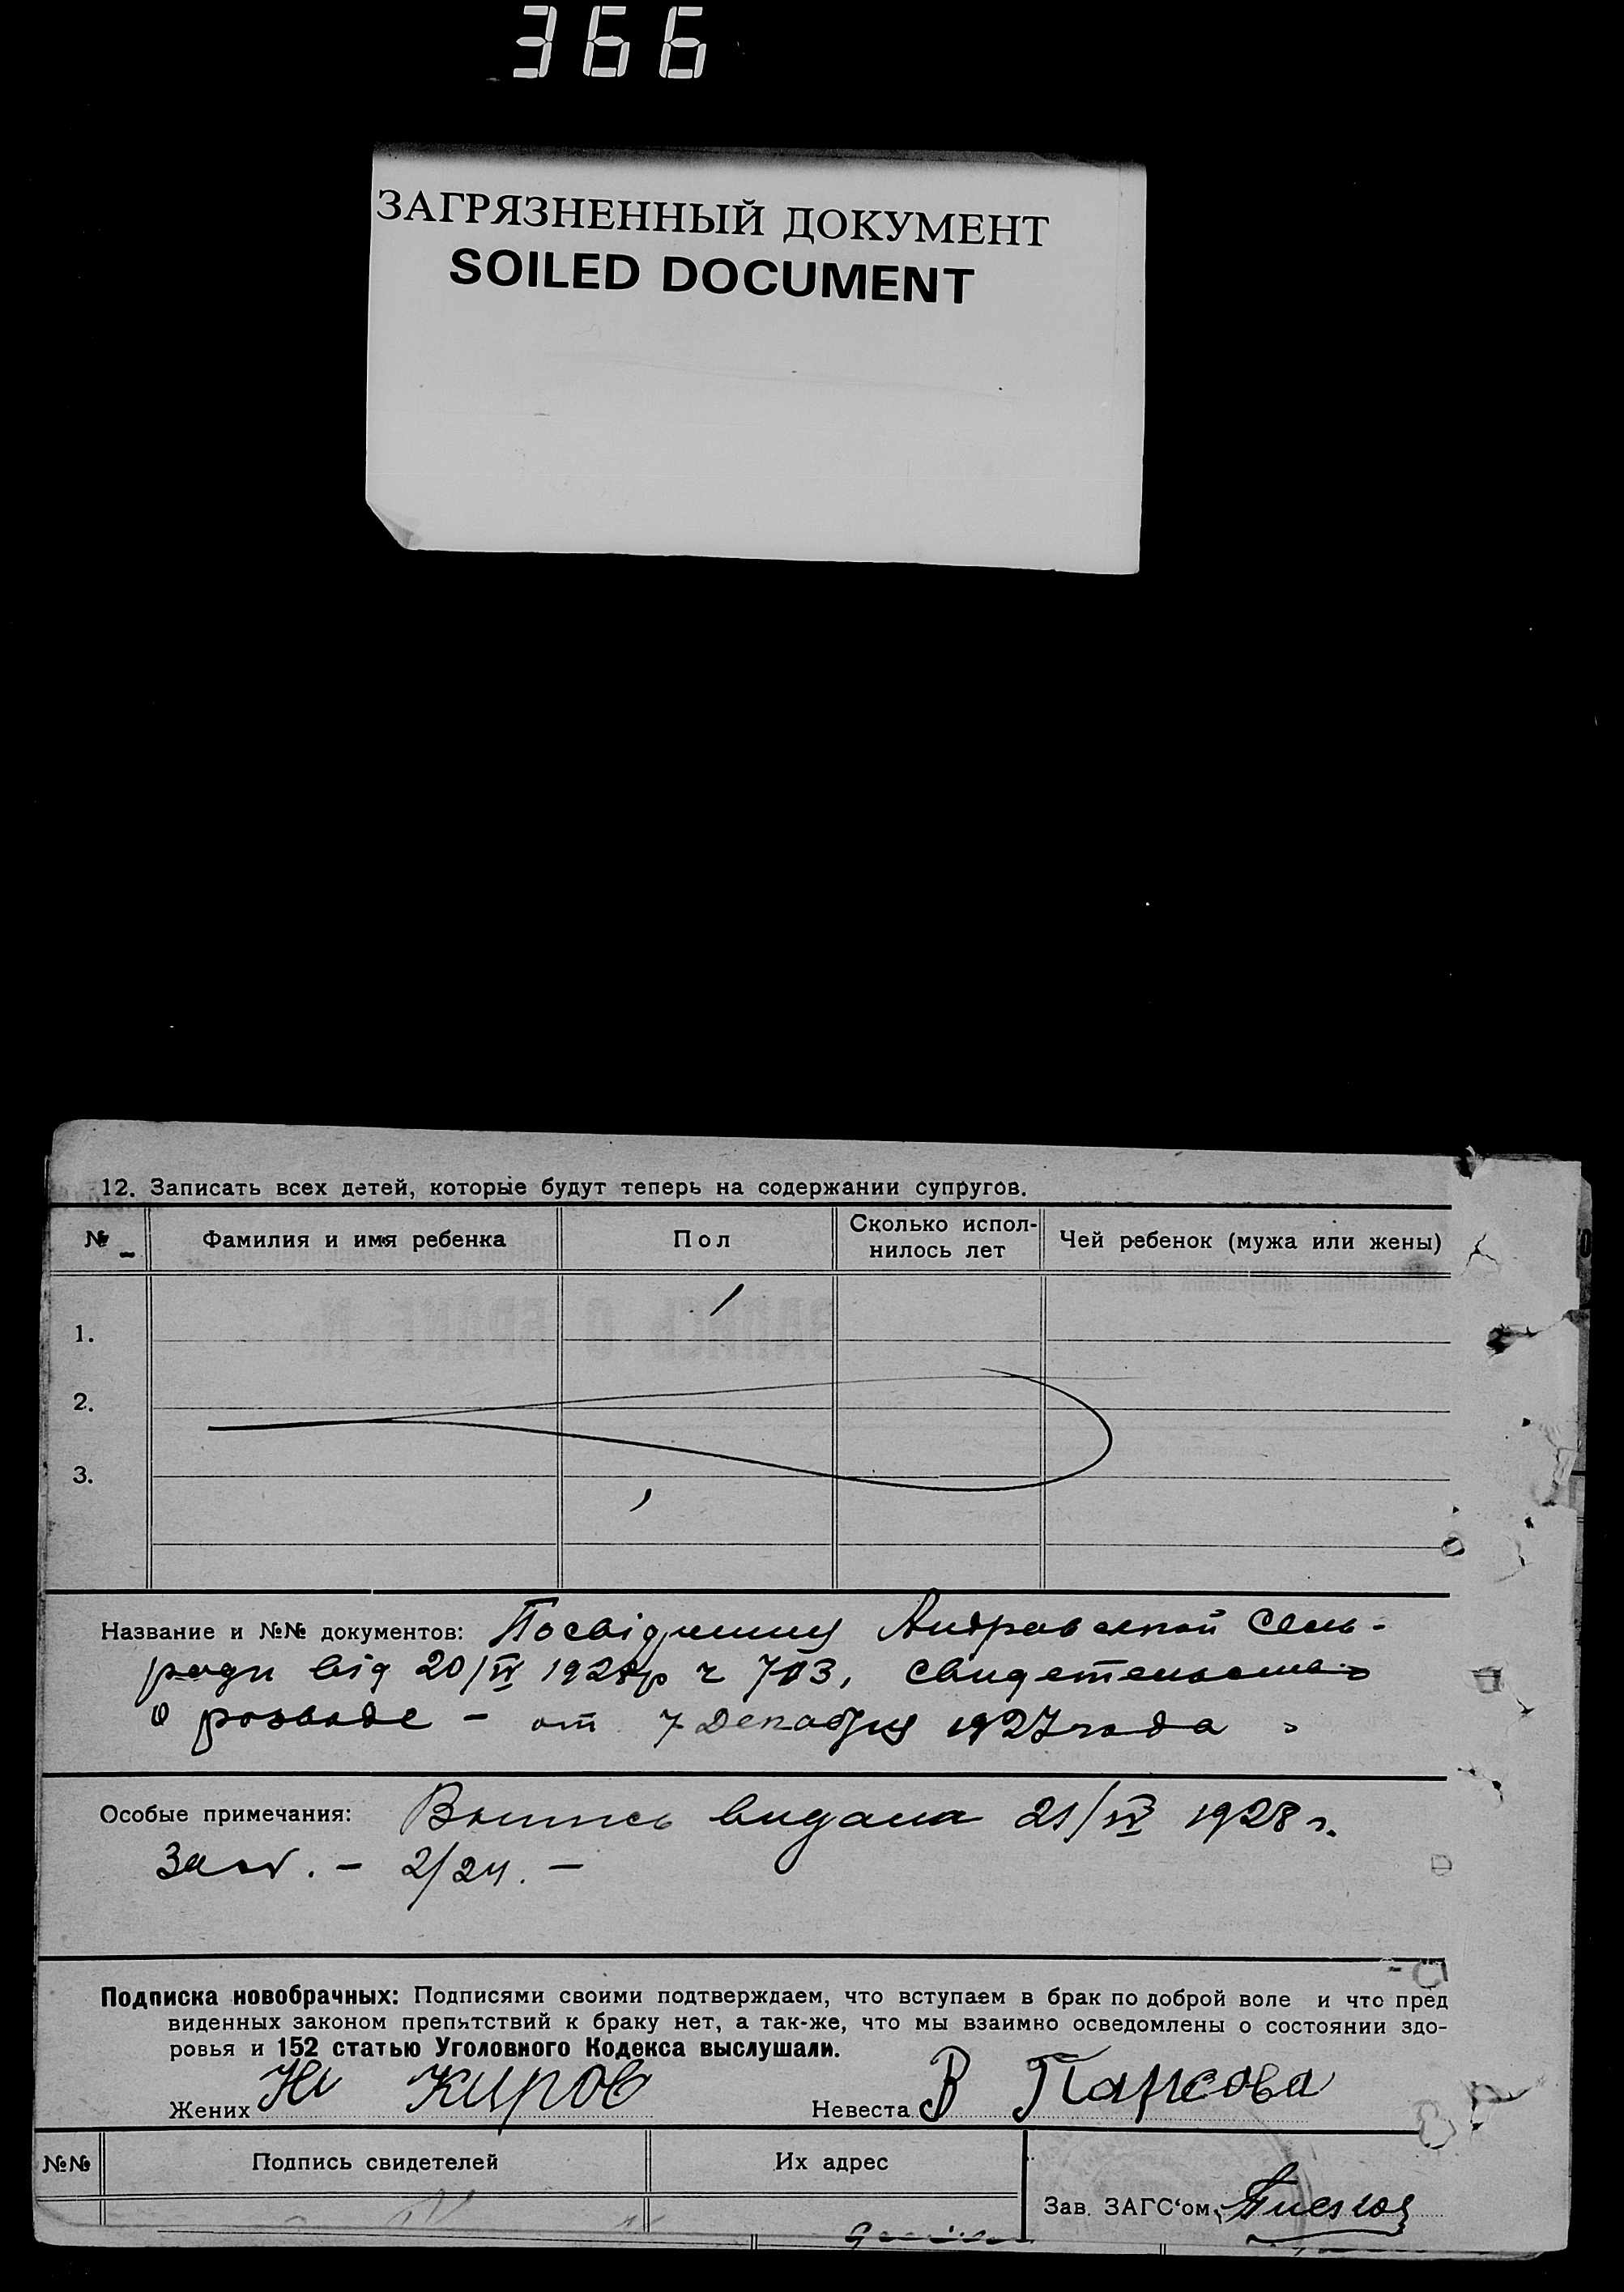 366
ЗАГРЯЗНЕННЫЙ ДОКУМЕНТ
SOILED DOCUMENT
12. Записать всех детей, которые будут теперь на содержании супругов.
№ Фамилия и имя ребенка Пол Сколько испол-нилось лет Чей ребенок (мужа или жены)
1.
2.
3.
Название и №№ документов: Посвідчення Андровской Сель-
ради від 20/IV 1928р ч 703, свидетельство
о розводе – от 7 Декабря 1927 года
Особые примечания: Выпись видана 21/IV 1928 г.
2/24. –
Подписка новобрачных: Подписями своими подтверждаем, что вступаем в брак по доброй воле и что пред
виденных законом препятствий к браку нет, а так-же, что мы взаимно осведомлены о состоянии здо-
ровья и 152 статью Уголовного Кодекса выслушали.
Жених Киров Невеста В
№№ Подпись свидетелей Их адрес
Зав. ЗАГС‘ом